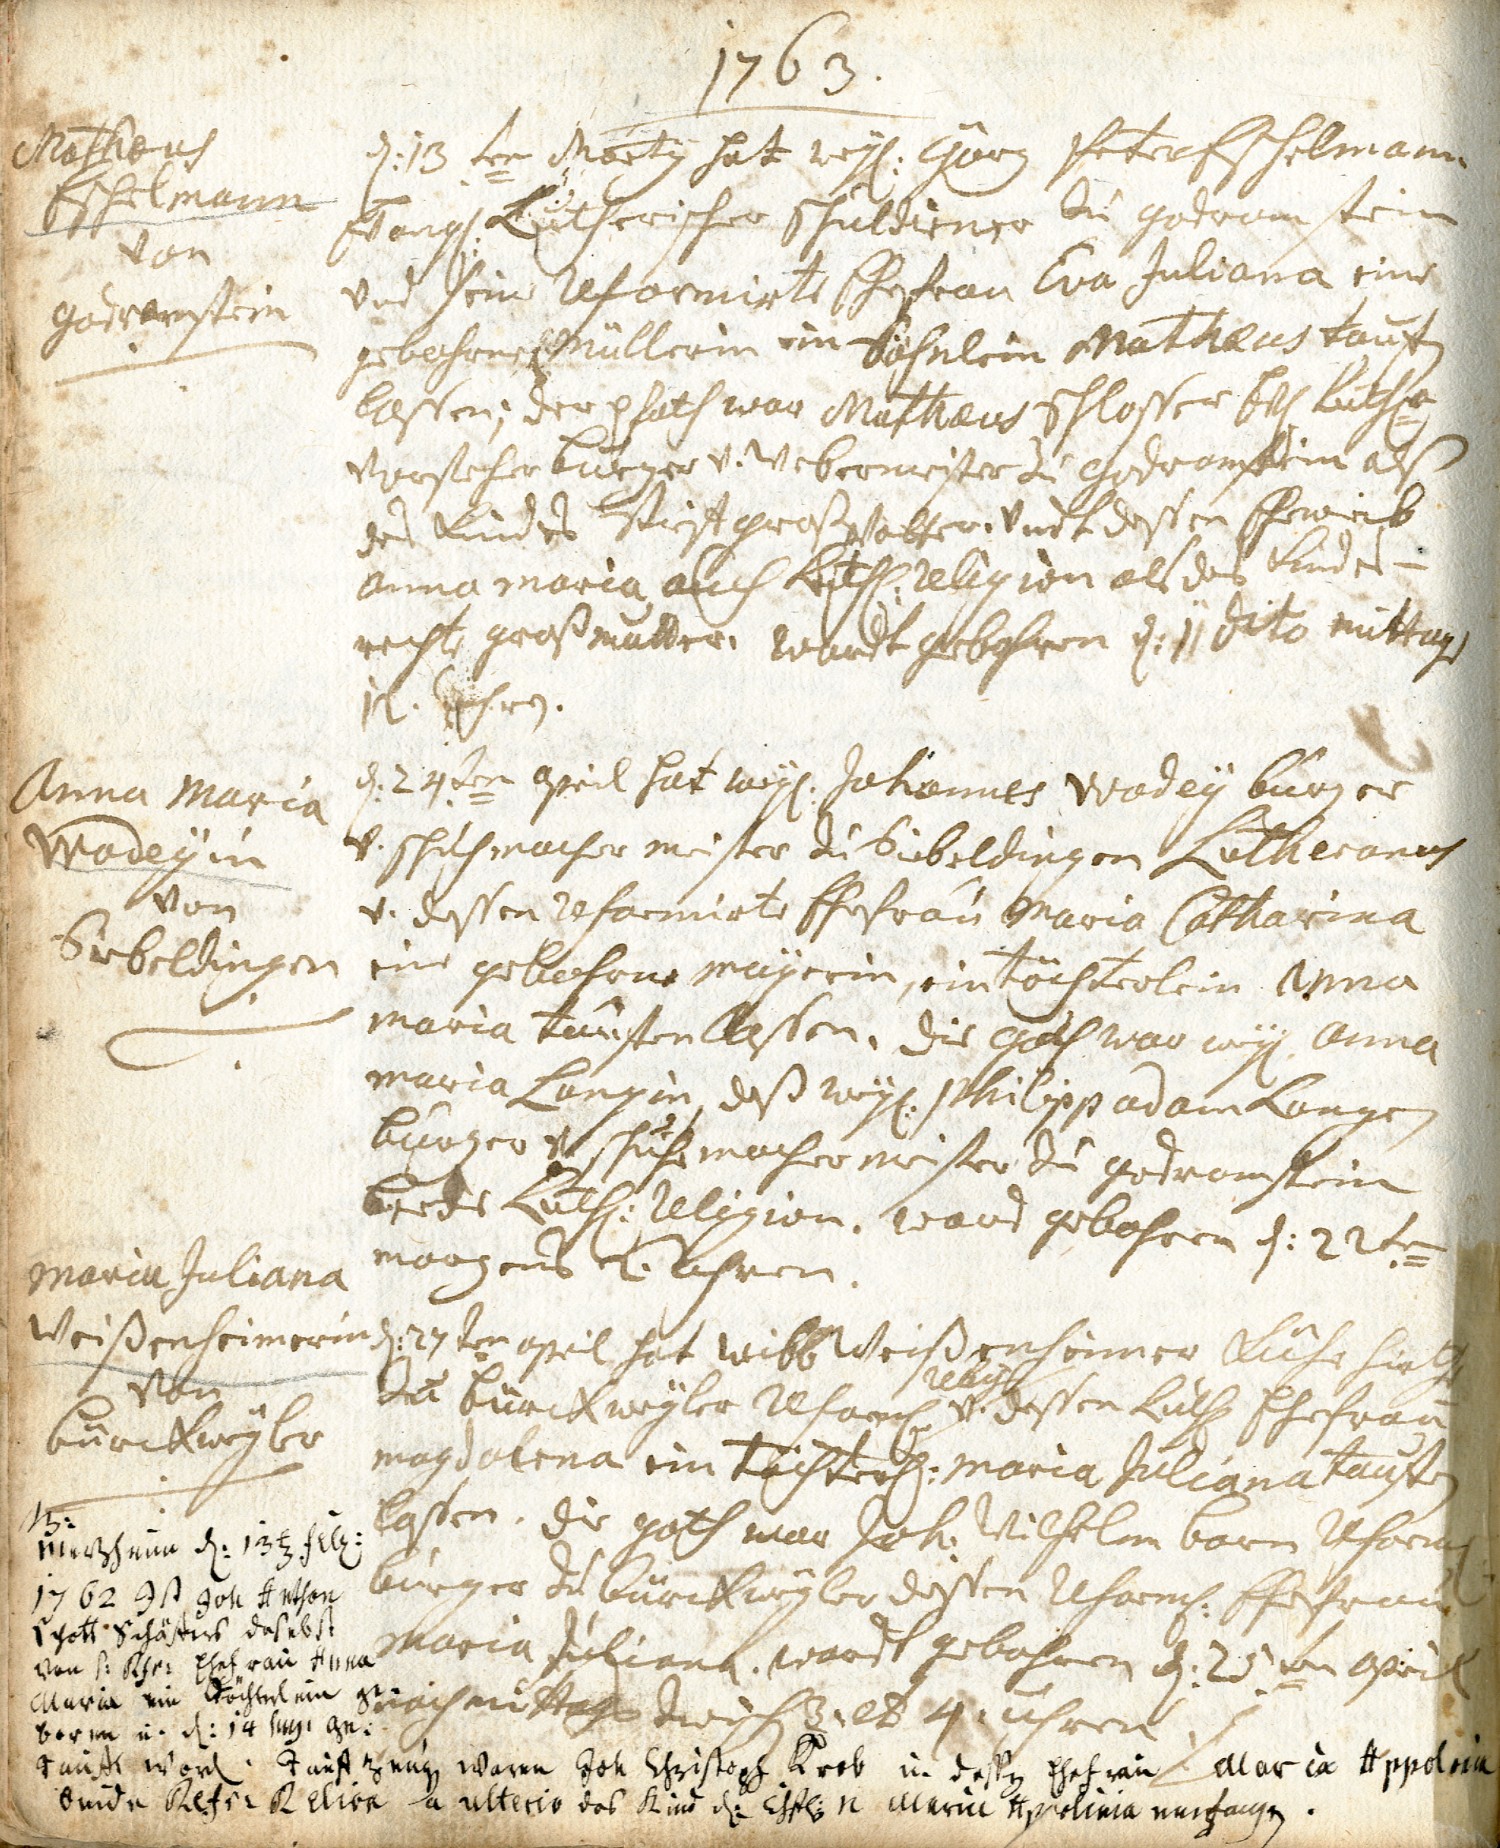 1763.
Matheus
Eschelmann
von
godramstein
d: 13 ten Marty hat Georg Peter Eschelmann
Evangl: Lutherischer schuldiener zu godramstein
und seine Reformirte Ehefrau Eva Juliana eine
gebohrne Müllerin ein Söhnlein Mathæus tauffen
lassen; der phath war Mathæus Schlosser Luther
Vorsteher burger v. Webermeister zu godramstein als
des Kindes Stiefgroßvatter. Undt dessen Eheweib
anna maria auch Luth: Religion als des Kindes-
rechte großmutter. wardt gebohren d: 11 dito mittags
12. Uhren.
Anna Maria
Wodeÿin
von
Siebeldingen
d: 24ten april hat Johannes Wodeÿ burger
v. schuhmacher meister zu Siebeldingen Lutheranus
v. dessen Reformirte Ehefrau Maria Catharina
eine gebohrne mayerin, ein töchterlein Anna
maria tauffen lassen. die goth war anna
maria Langin, deß Philipp adam Langen
burger v. schuhmacher meister zu godramstein
beede Luth: Religion. ward gebohren d: 22ten
morgens Uhren.
Maria Juliana
Weißenheimerin
von
bürckweÿler
d: 27ten april hat Weißenheimer Kühe hirth
zu bürckweÿler Reform: Relig v. dessen Luth Ehefrau
magdalena ein töchterl: maria Juliana tauffen
lassen. die goth war Joh: Wilhelm born Reform
burger zu bürckweÿler dessen Reform: Ehefrau
maria Juliana. wardt gebohren d: 25ten april
nachmittags zwisch 3. et 4. uhren.
d: 13
1762 Ist Joh Anthon
Schott Schäffers daselbst
von s: Ehefrau Anna
Maria ein Töchterlein ge
boren u. d: 14 ge:
taufft word. Taufzeugen waren Joh Christoph Kreb u. dessen Ehefrau Maria Appolonia
beide Religion das Kind Maria Appolonia